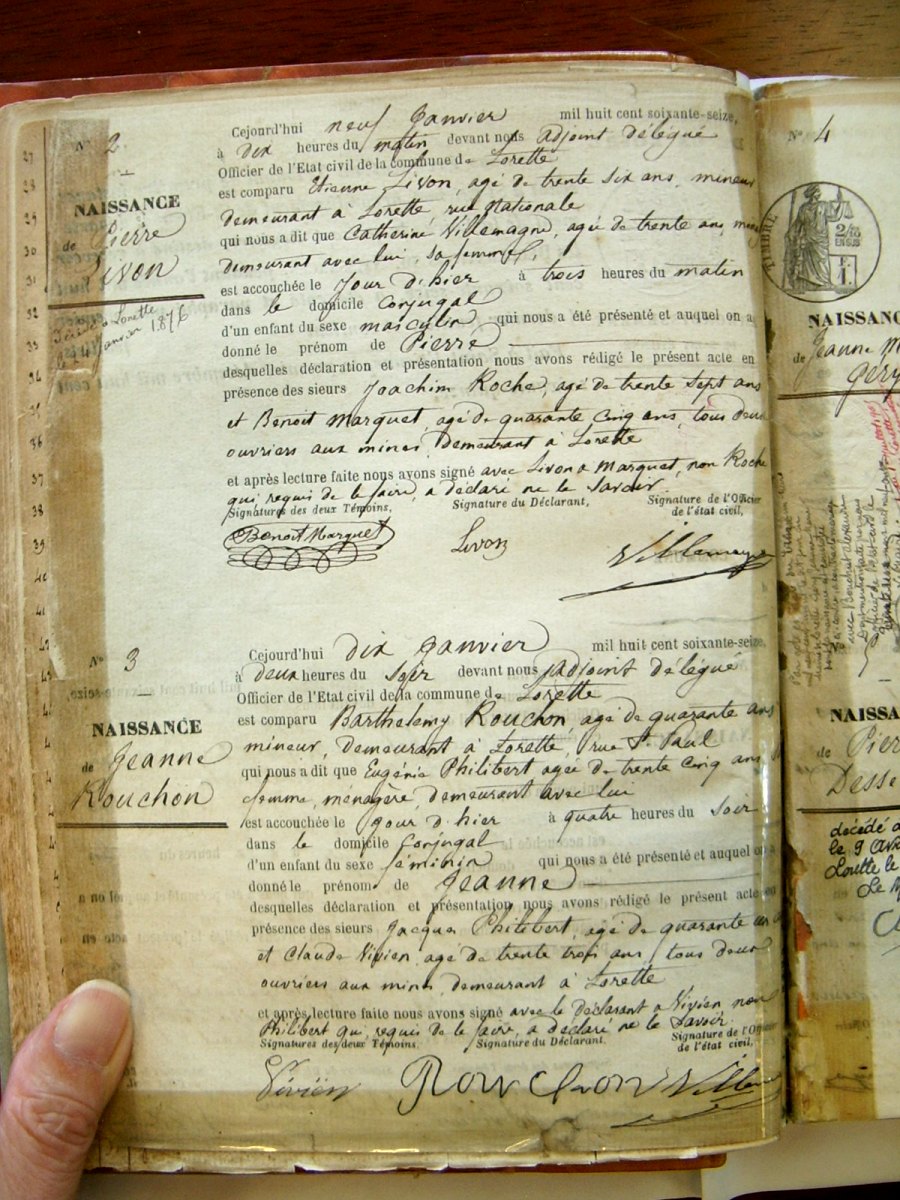 N° 2
NAISSANCE
de Pierre
Livon
Décédé à Lorette
janvier 1876
Cejourd'hui neuf Janvier mil huit cent soixante-seize,
à dix heures du matin devant nous adjoint délégué
Officier de l'Etat civil de la commune de Lorette
est comparu Etienne Livon, agé de trente six ans, mineur
demeurant à Lorette, rue Nationale
qui nous a dit que Catherine Villemagne, agée de trente ans,
demeurant avec lui, sa femme,
est accouchée le Jour d'hier à trois heures du matin
dans le domicile Conjugal
d'un enfant du sexe masculin qui nous a été présenté et auquel on a
donné le prénom de Pierre
desquelles déclaration et présentation nous avons rédigé le présent acte en
présence des sieurs Joachim Roche, agé de trente sept ans
et Benoit Marquet, agé de quarante cinq ans, tous deux
ouvriers aux mines, demeurant à Lorette
et après lecture faite nous avons signé avec Livon & Marquet, non Roche
qui requis de le faire, a déclaré ne le savoir.
Signatures des deux Témoins, Signature du Déclarant, Signature de l'Officier
de l'état civil,
Benoit Marquet Livon Villemagne
N° 3
NAISSANCE
de Jeanne
Rouchon
Cejourd'hui dix Janvier mil huit cent soixante-seize,
à deux heures du soir devant nous adjoint délégué
Officier de l'Etat civil de la commune de Lorette
est comparu Barthelemy Rouchon agé de quarante ans
mineur, demeurant à Lorette, rue St Paul
qui nous a dit que Eugénie Philibert agée de trente cinq ans,
femme, ménagère, demeurant avec lui
est accouchée le jour d'hier à quatre heures du soir
dans le domicile Conjugal
d'un enfant du sexe féminin qui nous a été présenté et auquel on a
donné le prénom de Jeanne
desquelles déclaration et présentation nous avons rédigé le présent acte en
présence des sieurs Jacques Philibert, agé de quarante un
et Claude Vivien, agé de trente trois ans, tous deux
ouvriers aux mines demeurant à Lorette
et après lecture faite nous avons signé avec le déclarant & Vivien non
Philibert qui, requis de le faire, a déclaré ne le Savoir.
Signatures des deux Témoins. Signature du Déclarant. Signature de l'Officier
de l'état civil,
Vivien Rouchon
N° 4
TIMBRE
NAISSANC
de Jeanne M
Gery
NAISSA
de Pier
Desse
décédé à
le 9 avr
Lorette le
Le